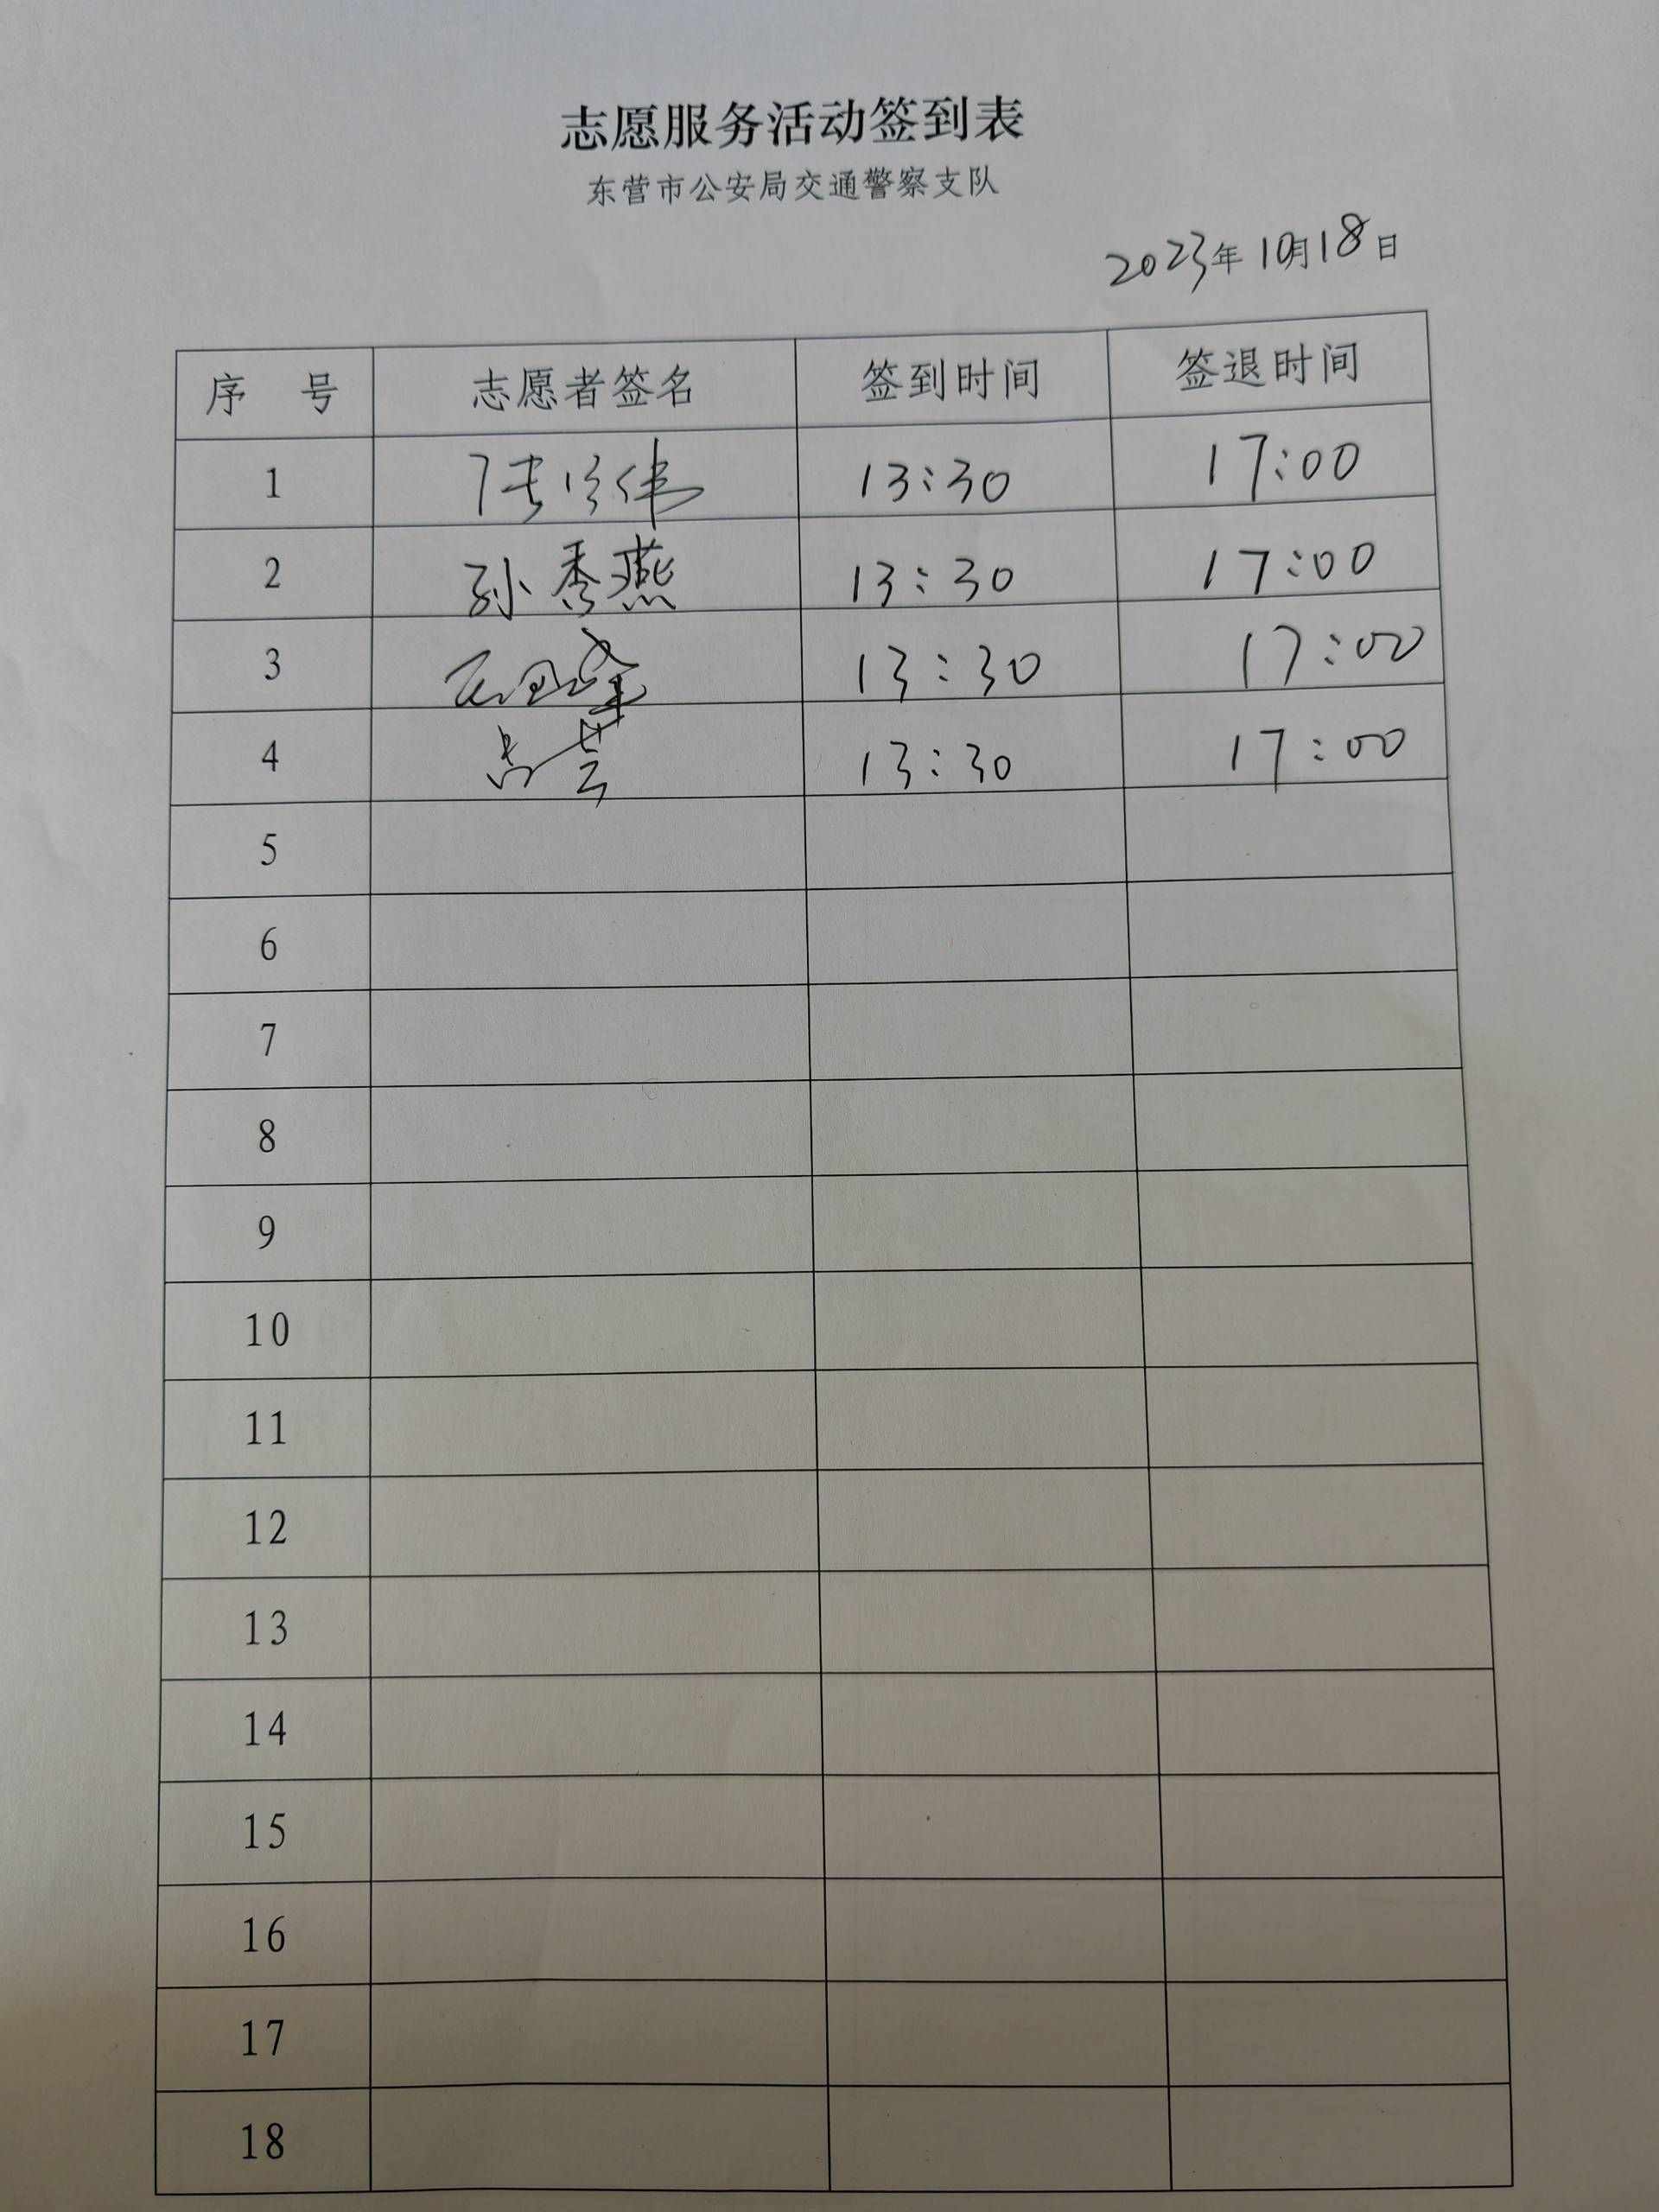 志愿服务活动签到表
东营市公安局交通警察支队
2023年10月18日
序 号 志愿者签名 签到时间 签退时间
1 13:30 17:00
2 孙秀燕 13:30 17:00
3 13:30 17:00
4 13:30 17:00
5
6
7
8
9
10
11
12
13
14
15
16
17
18